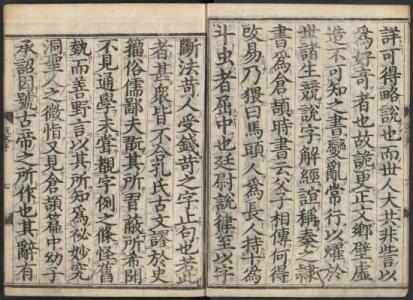 詳可得略說也而世人大共非訾以
為好奇者也故詭更正文鄉壁虛
造不可知之書變亂常行以燿於
世諸生競說字解經誼稱秦之隸
書為倉頡時書云父子相傳何得
改易乃猥曰馬頭人為長人持十為
斗虫者屈中也廷尉說律至以字
斷法苛人受錢苛之字止句也若此
者甚衆皆不合孔氏古文謬於史
籀俗儒鄙夫翫其所習蔽所希聞
不見通學未嘗覩字例之條怪舊
埶而善野言以其所知為祕妙究
洞聖人之微恉又見倉頡篇中幼子
承詔因號古帝之所作也其辭有